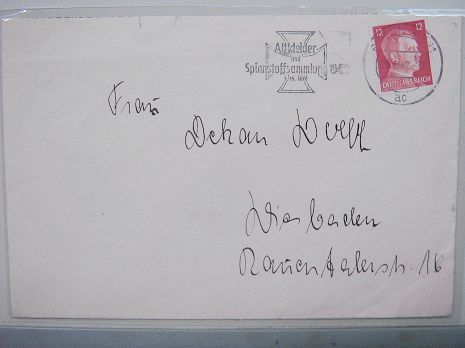 Altkleider
und
Spinnstoffsammlung 194
12
12
DEUTSCHES REICH
ac
Frau
Dekan Wolff
Wiesbaden
Rauentalerstr. 16